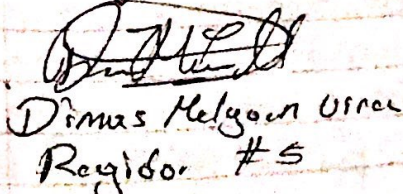 Dimas Melgoen Urrea
Regidor #5